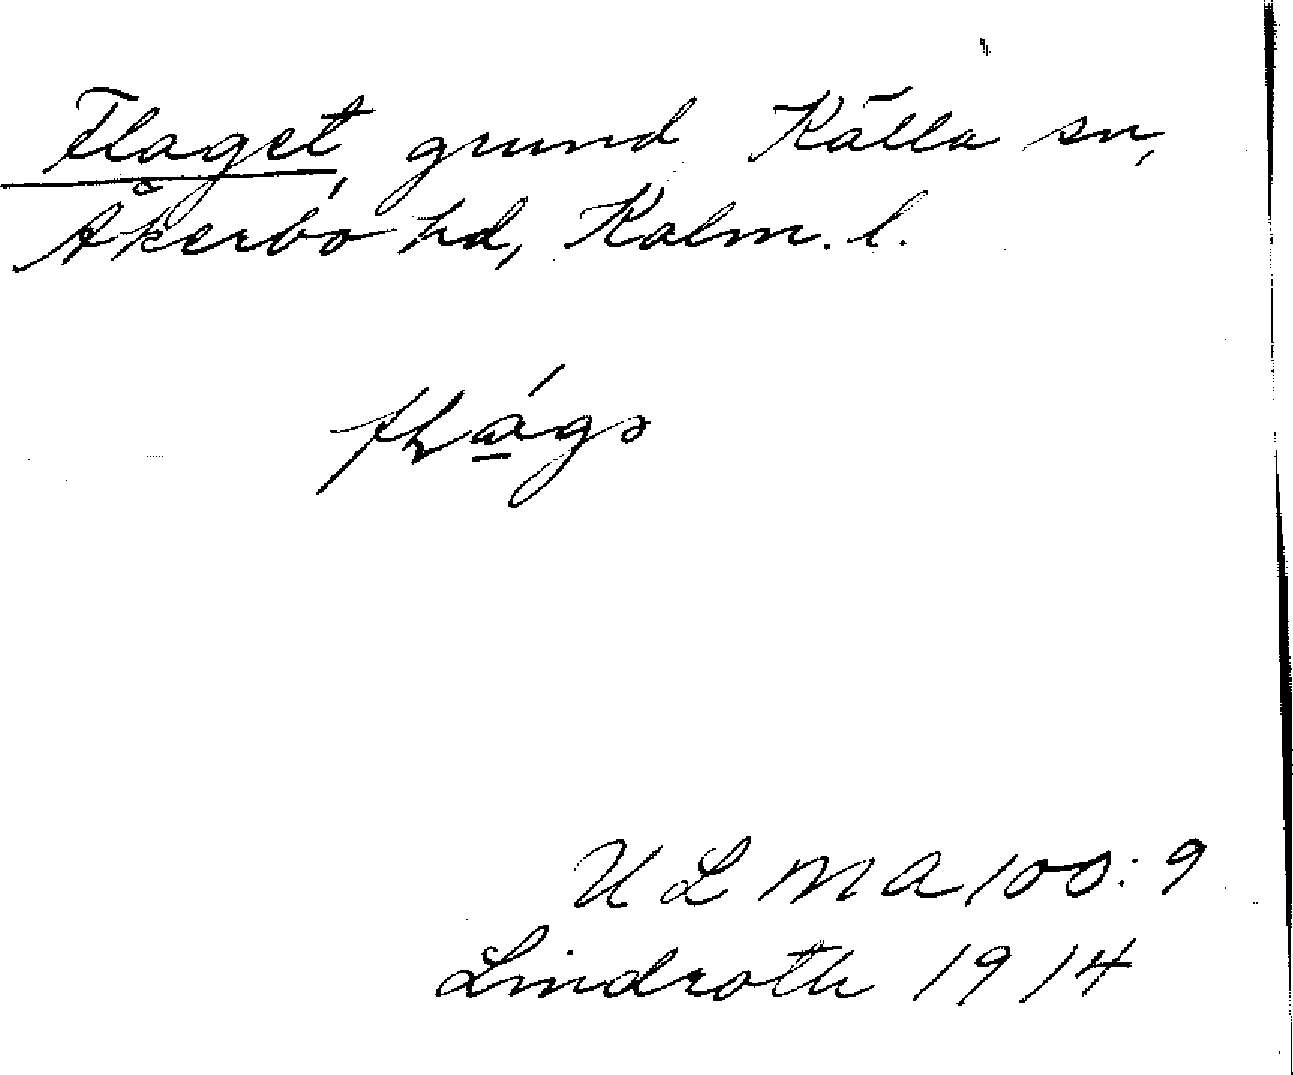 Flaget, grund Källa sn,
Åkerbo hd, Kalm. l.
ULMA 100:9
Lindroth 1914